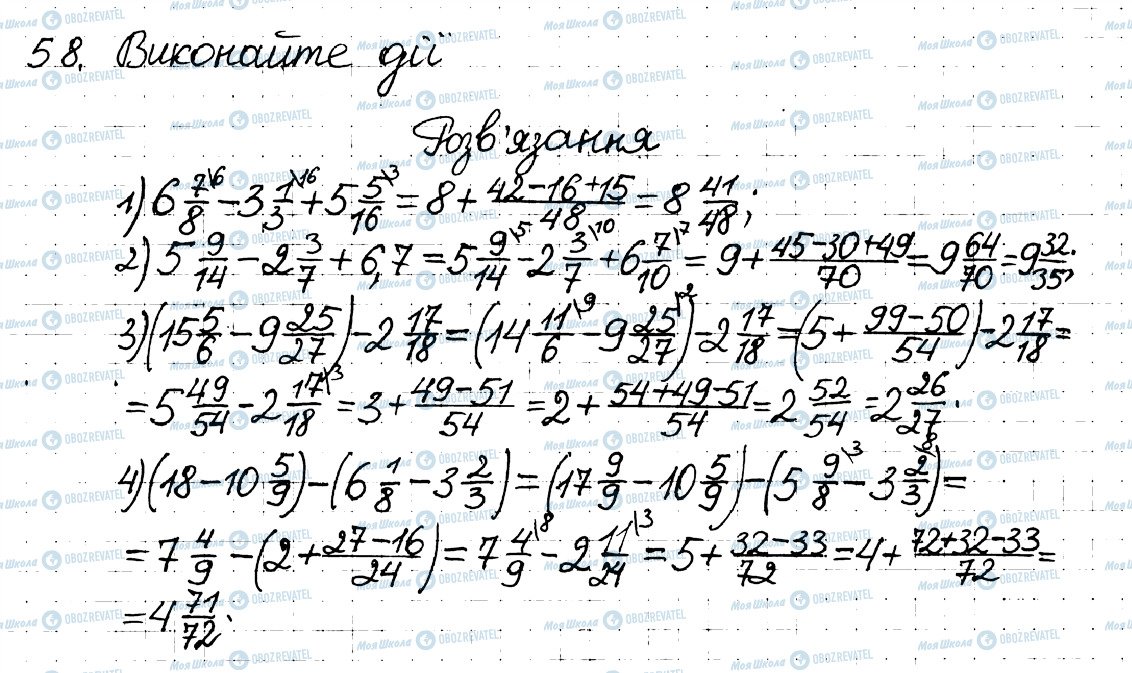 58. Виконайте дії
Розв'язання
1) 6 7/8 \6 - 3 1/3 \16 + 5 5/16 \3 = 8 + (42-16+15)/48 = 8 41/48;
2) 5 9/14 - 2 3/7 + 6,7 = 5 9/14 \5 - 2 3/7 \10 + 6 7/10 \7 = 9 + (45-30+49)/70 = 9 64/70 = 9 32/35;
3) (15 5/6 - 9 25/27) - 2 17/18 = (14 11/6 \9 - 9 25/27 \2) - 2 17/18 = (5 + (99-50)/54) - 2 17/18 =
= 5 49/54 - 2 17/18 \3 = 3 + (49-51)/54 = 2 + (54+49-51)/54 = 2 52/54 = 2 26/27.
4) (18 - 10 5/9) - (6 1/8 - 3 2/3) = (17 9/9 - 10 5/9) - (5 9/8 \3 - 3 2/3 \8) =
= 7 4/9 - (2 + (27-16)/24) = 7 4/9 \8 - 2 11/24 \3 = 5 + (32-33)/72 = 4 + (72+32-33)/72 =
= 4 71/72.